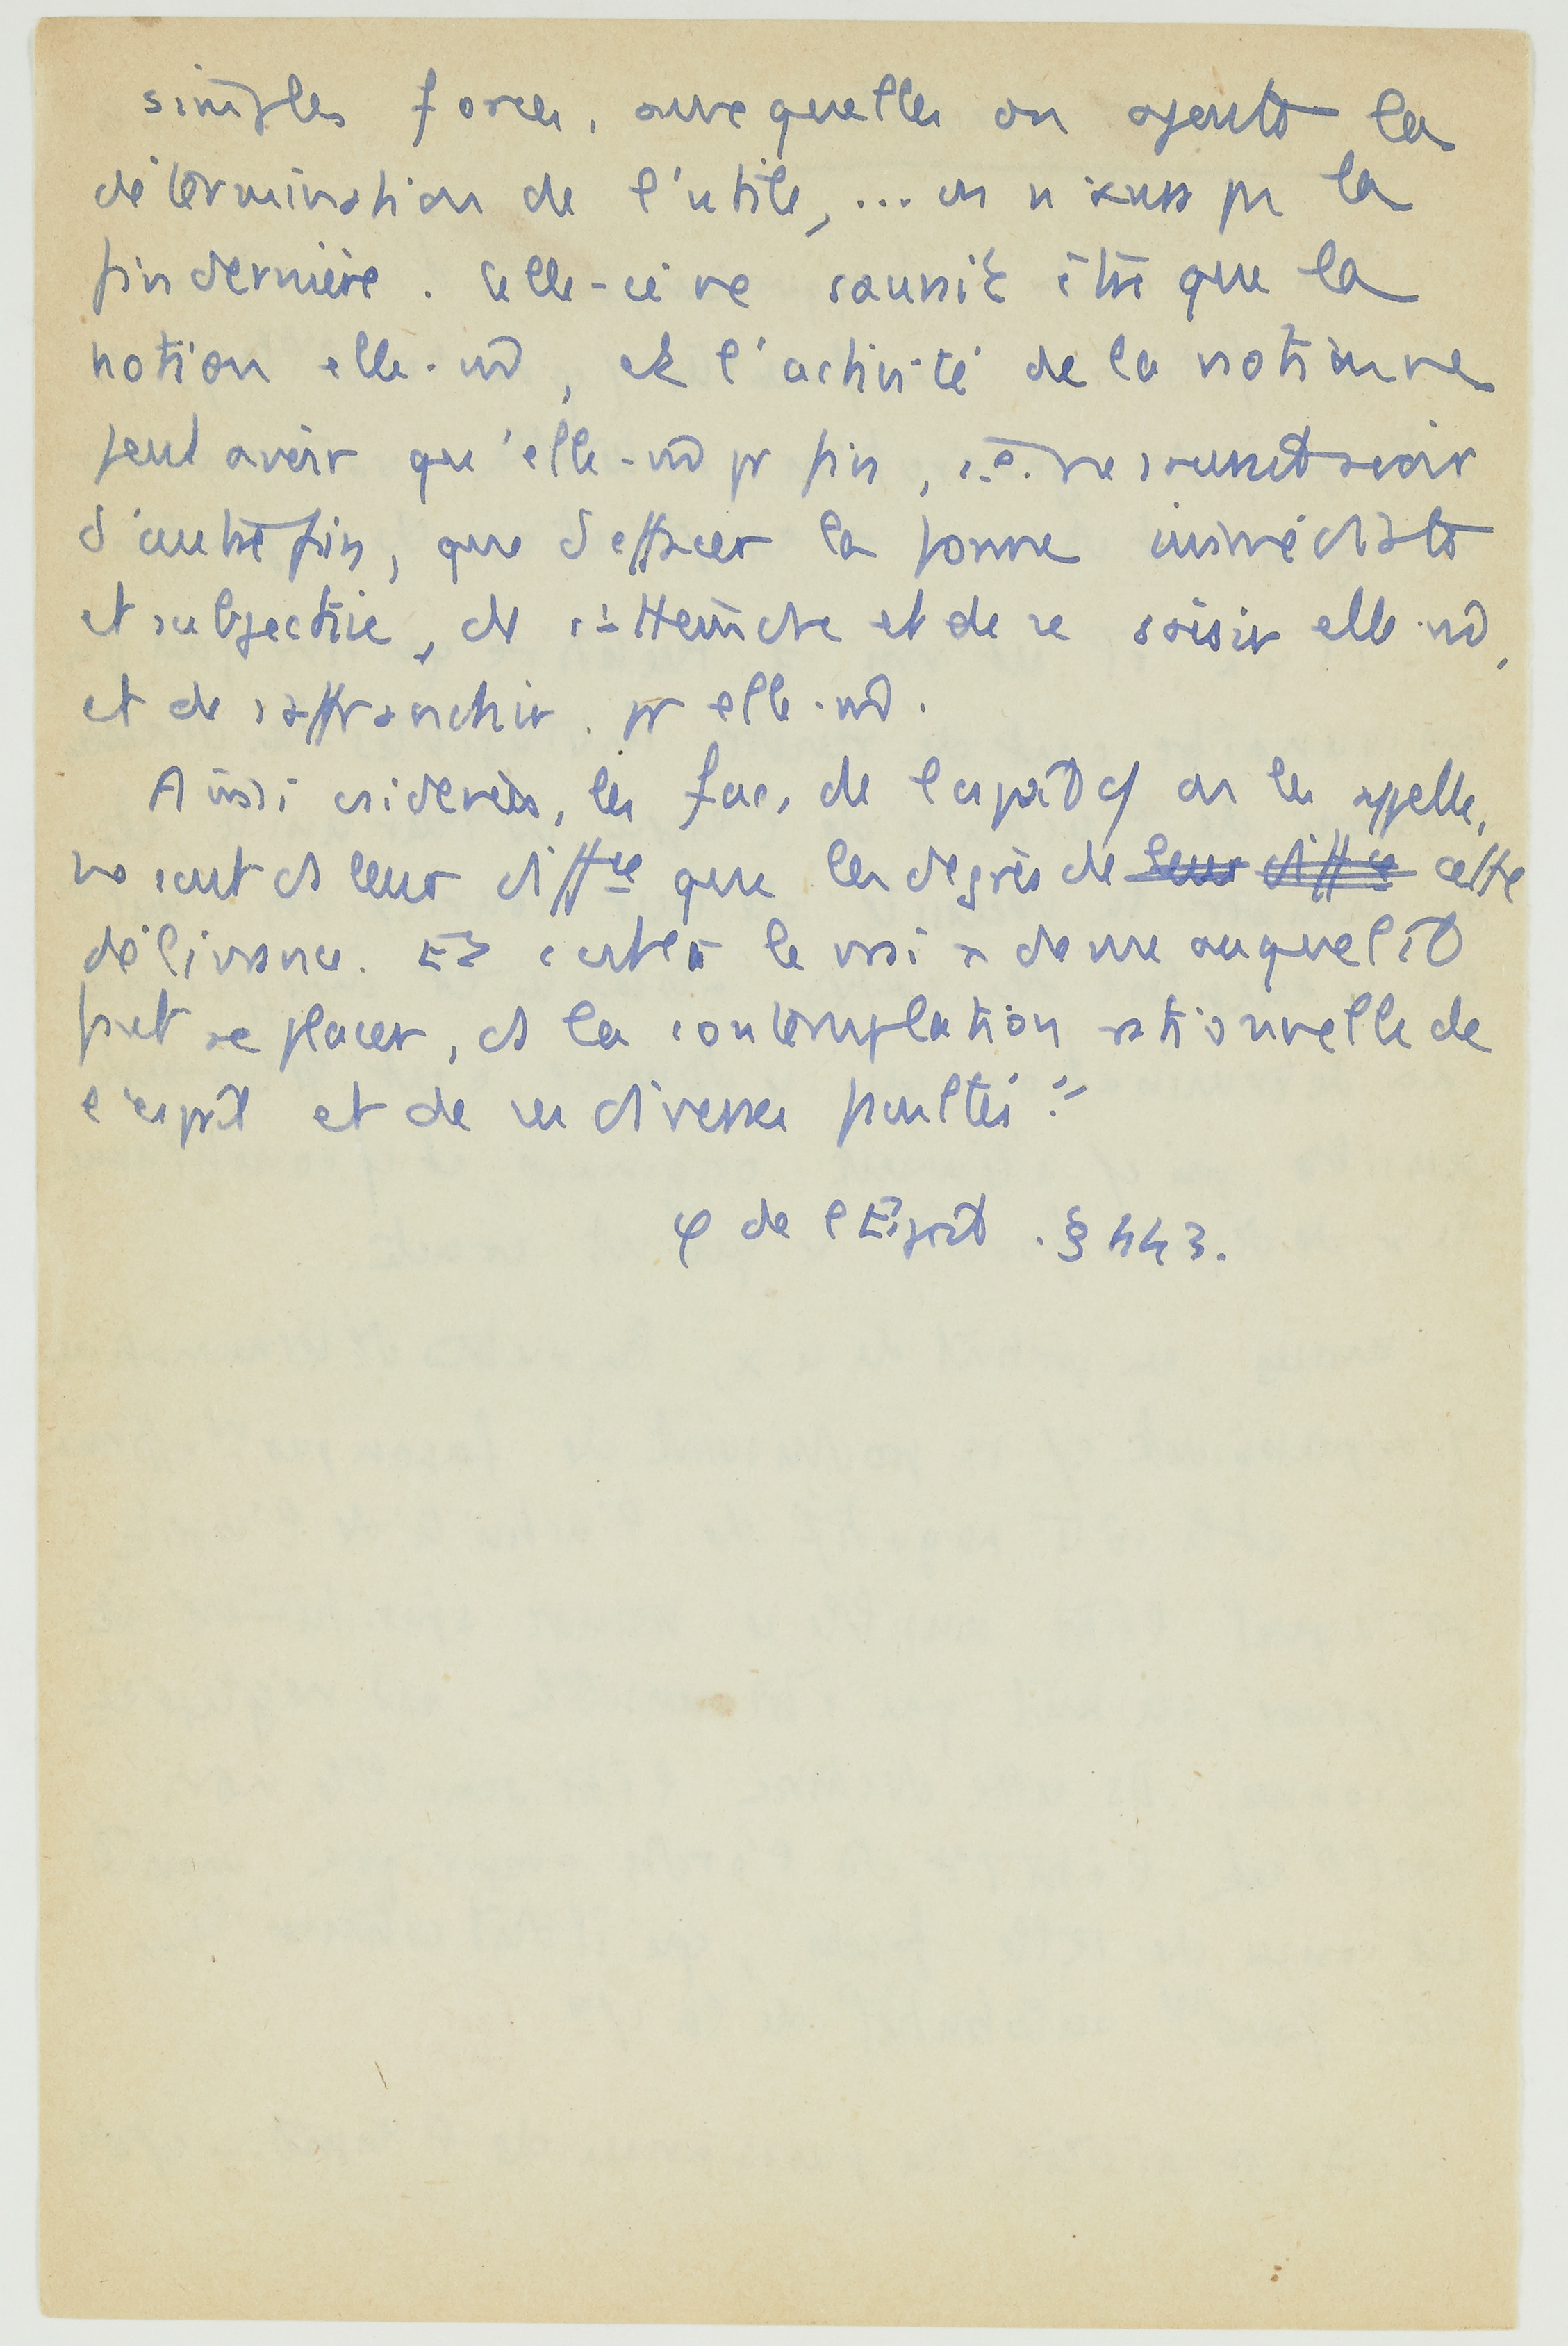 simples forces, auxquelles on ajoute la
détermination de l'utile, ... on n'a pas la
fin dernière. Celle-ci ne saurait être que la
notion elle-m̂, et l'activité de la notion ne
peut avoir qu'elle-m̂ pr fin, i.e. ne saurait avoir
d'autre fin, que d'effacer la forme immédiate
et subjective, de s'atteindre et de se saisir elle-m̂,
et de s'affranchir. pr elle-m̂.
Ainsi csidérées, les fac. de l'esprit cf on les appelle,
ne sont ds leur diffce que les degrés de leur diffce cette
délivrance. Et c'est là le vrai de vue auquel il
faut se placer, ds la contemplation rationnelle de
l'esprit et de ses diverses facultés."
φ de l'Esprit. § 443.